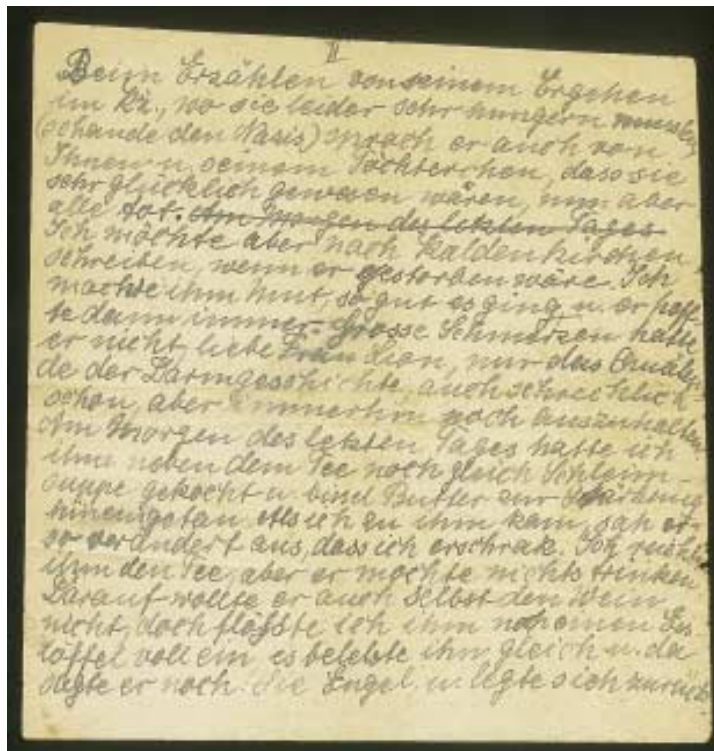 II
Beim Erzählen von seinem Ergehen
im Kz., wo sie leider sehr hungern mussten
(schande den Nazis) sprach er auch von
Ihnen u. seinem Töchterchen, dass sie
sehr glücklich gewesen wären, nun aber
alle tot. Am Morgen des letzten Tages
Ich möchte aber nach Kaldenkirchen
schreiben, wenn er gestorben wäre. Ich
machte ihm Mut, so gut es ging u. er hoff-
te dann immer. Grosse Schmerzen hatte
er nicht, liebe Frau Lion, nur das Quälen-
de der Darmgeschichte, auch schrecklich
schon, aber immerhin noch auszuhalten.
Am Morgen des letzten Tages hatte ich
ihm neben dem Tee noch gleich Schleim-
suppe gekocht u. bissl Butter zur Stärkung
hineingetan. Als ich zu ihm kam, sah er
so verändert aus, dass ich erschrak. Ich reichte
ihm den Tee, aber er mochte nichts trinken
Darauf wollte er auch selbst den Wein
nicht, doch flösste ich ihm noch einen Ess
löffel voll ein es belebte ihn gleich u. da
sagte er noch: Sie Engel. u. legte sich zurück